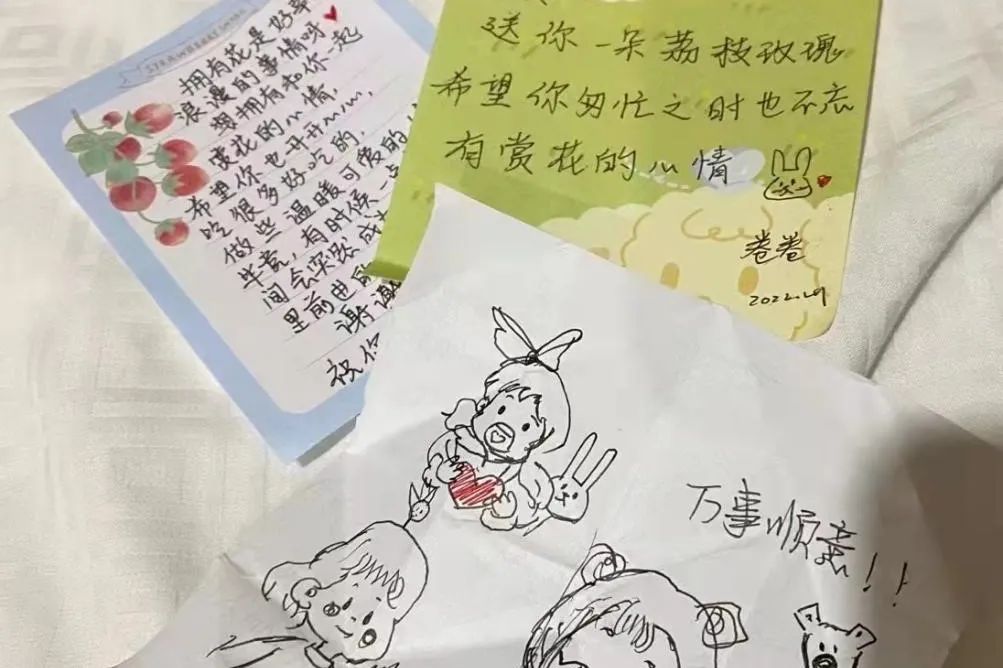 STRAWBERRY
拥有花是好幸
浪漫的事情呀
想拥有和你一起
赏花的心情
希望你也开开心心,
吃很多好吃的,
做些温暖可爱的
毕竟,有时候一点
间会深蹊成
里前进的
谢谢
祝你
送你一朵荔枝玫瑰
希望你匆忙之时也不忘
有赏花的心情
卷卷
万事顺意!!